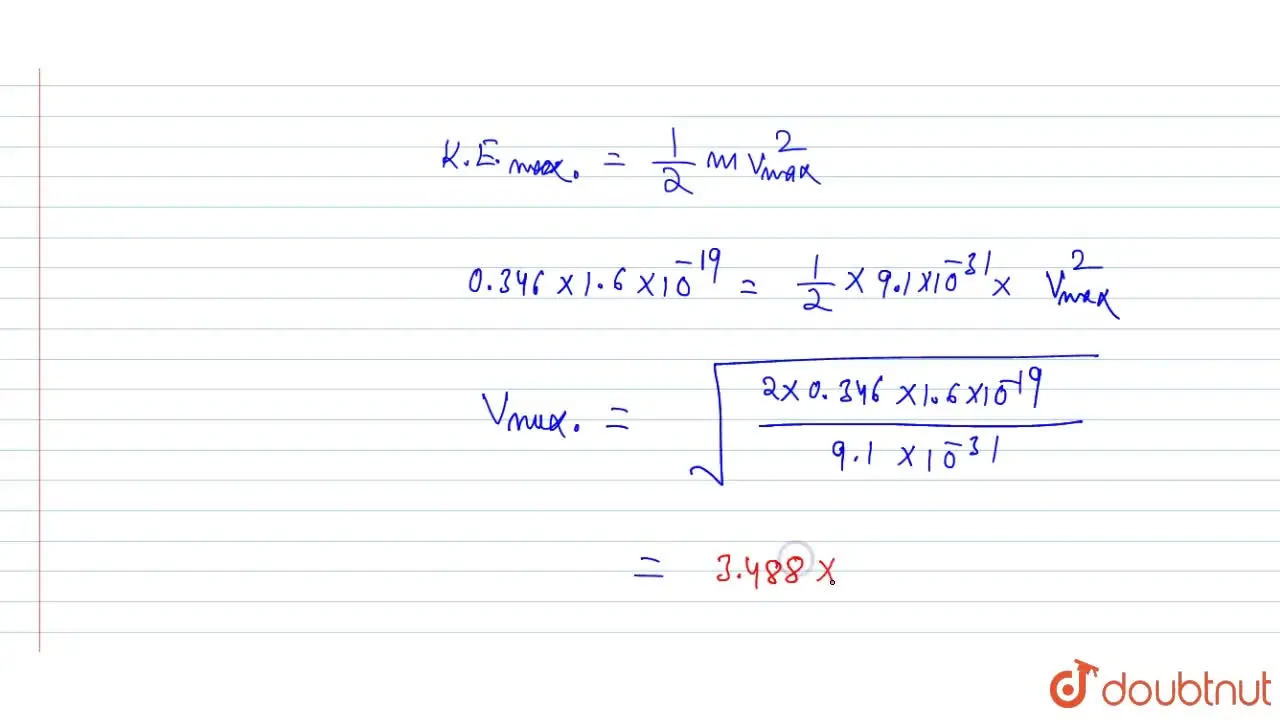 K.E. max. = 1/2 m Vmax^2
0.346 × 1.6 × 10^-19 = 1/2 × 9.1 × 10^-31 × Vmax^2
Vmax. = √(2 × 0.346 × 1.6 × 10^-19 / 9.1 × 10^-31)
= 3.488 ×
doubtnut